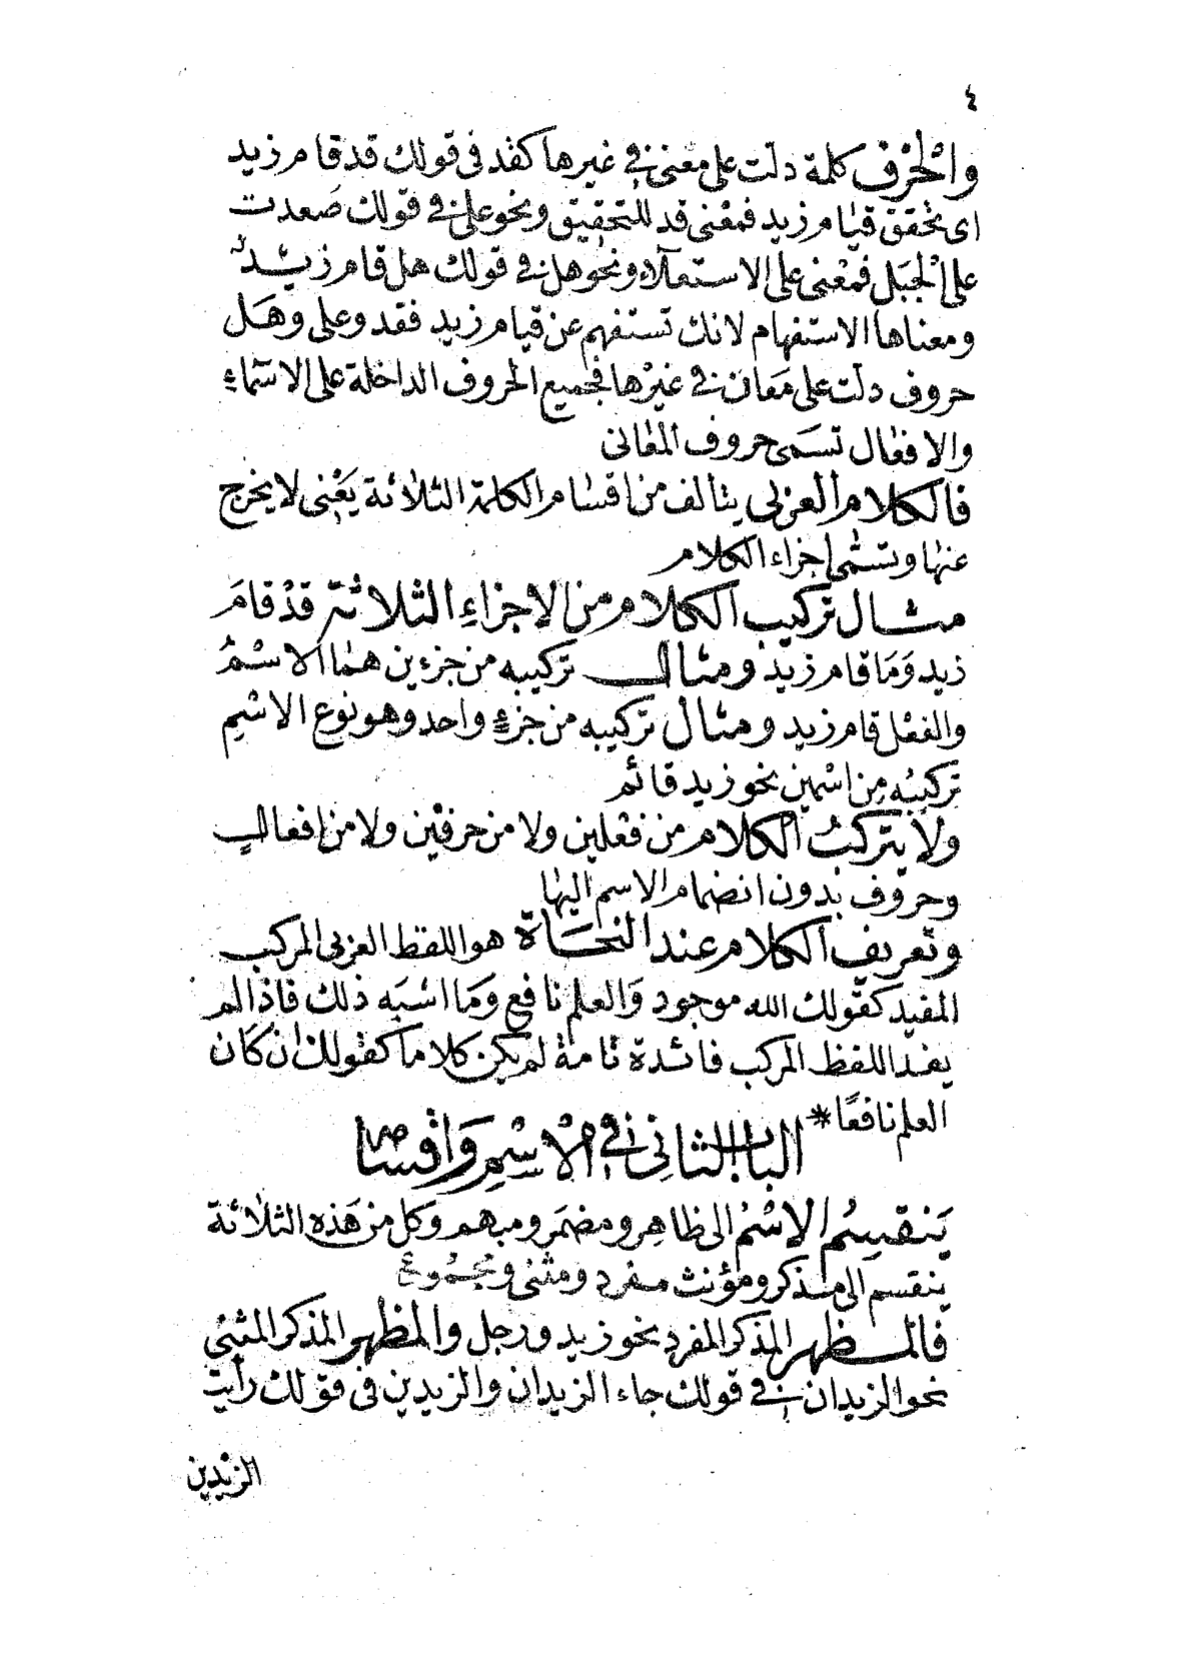 ٤
والْحَرْف كلمة دلّت على معنى في غيرها كقد فى قولك قد قام زيد
اى تحقق قيام زيد فمعْنى قد للتحقيق ونحو على في قولك صَعدت
على الْجبَل فمعْنى على الاستعلاء ونحو هل في قولك هل قام زيدٌ
ومعناها الاستفهام لانك تستفهم عن قيام زيد فقد وعلى وهَل
حروف دلّت على مَعَان في غيْرها فجميع الحروف الداخلة على الاسماءِ
والافعال تسَمى حروف المعانى
فالكلام العربى يتألف من اقسام الكلمة الثلاثة يَعْنى لا يخرج
عنها وتسمى اجزاء الكلام
مثال تركيب الكلام من الاجزاءِ الثلاثة قدْ قامَ
زيد وَمَا قام زيد ومثال تركيبه من جزءين هما الاسْمُ
والفعْل قام زيد ومثال تركيبه من جزءٍ واحد وهو نوع الاسْمِ
تركيبُه مِن اسْمين نحو زيد قائم
ولا يتركبُ الكلام من فعْلين ولا من حرفيْن ولا من افعال
وحروف بدون انضمام الاسم اليها
وتعريف الكلام عند النحَاة هو اللفظ العربى المركب
المفيد كقولك الله موجود وَالعلم نافع وَمَا اشبَه ذلك فاذا لم
يفد اللفظ المركب فائدة تامة لم يكن كلاما كقولك ان كَان
العلم نافعًا *
الباب الثانِى فِي الْاسْمِ وَاقْسامه
يَنقسِمُ الاسْمُ الى ظاهِر ومضمَر ومبهم وكل من هَذه الثلاثة
ينقسم الى مذكر ومؤنث مفرد ومثنى ومجْموع
فالمظهر المذكر المفرد نحو زيد ورجل والمظهر المذكر المثنى
نحو الزيدان في قولك جاء الزيدان والزيدين فى قولك رأيت
الزيْدين